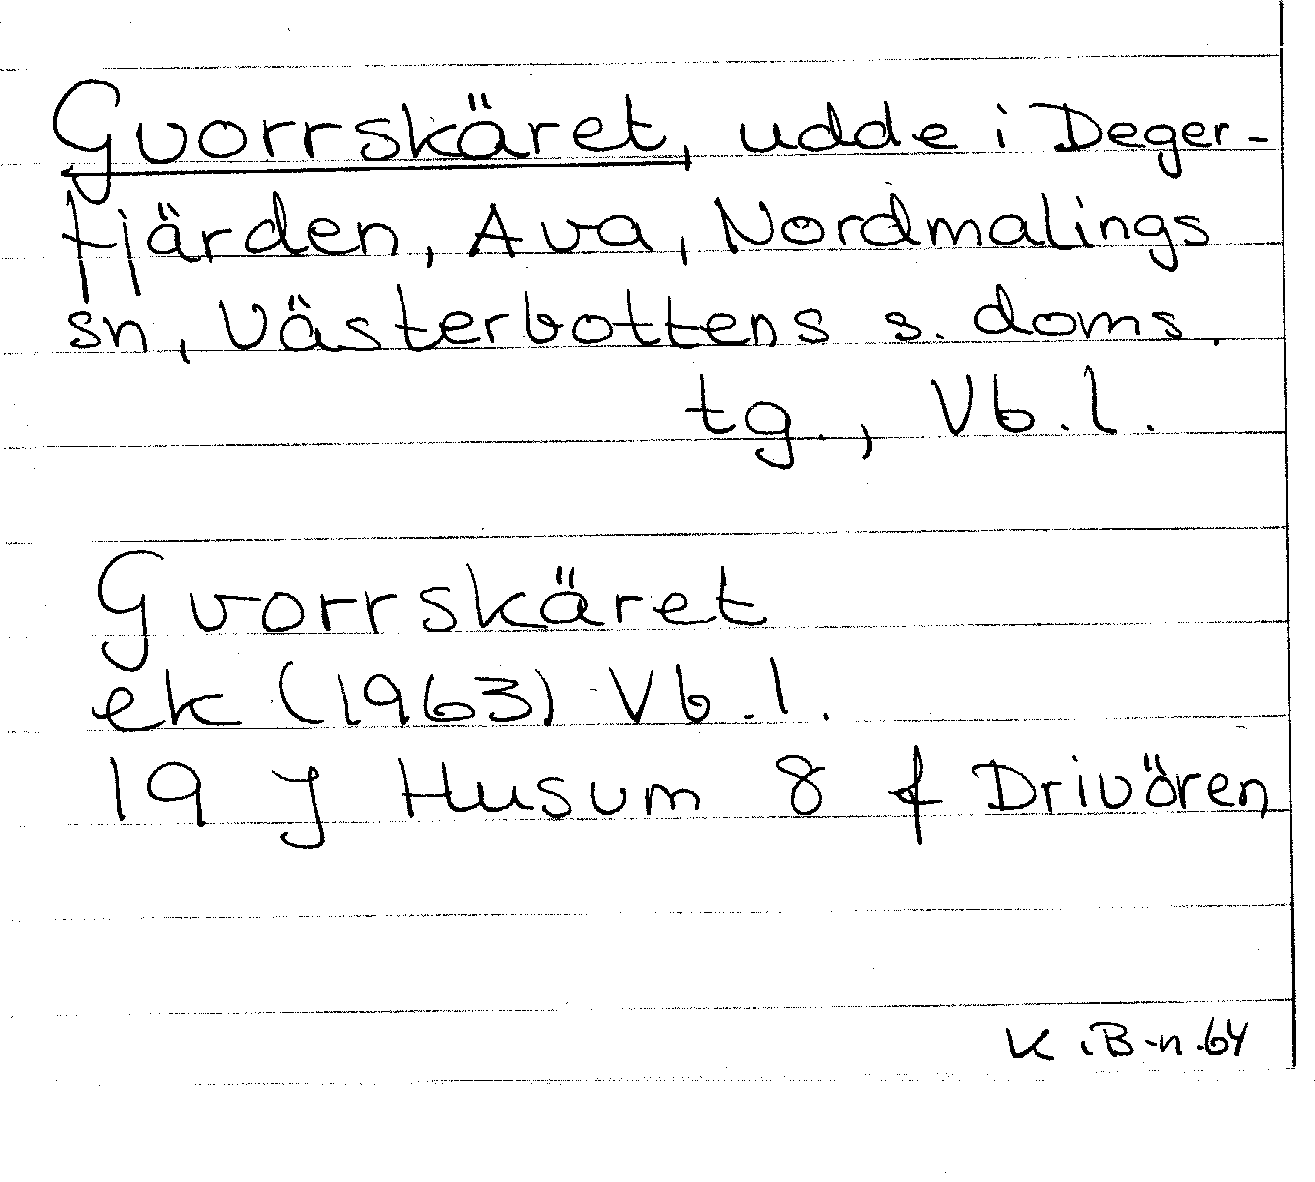 Gvorrskäret, udde i Deger-
fjärden, Ava, Nordmalings
sn, Västerbottens s. doms.
tg., Vb. l.
Gvorrskäret
ek (1963) Vb. l.
19 J Husum 8 f Drivören
K. B-n. 64